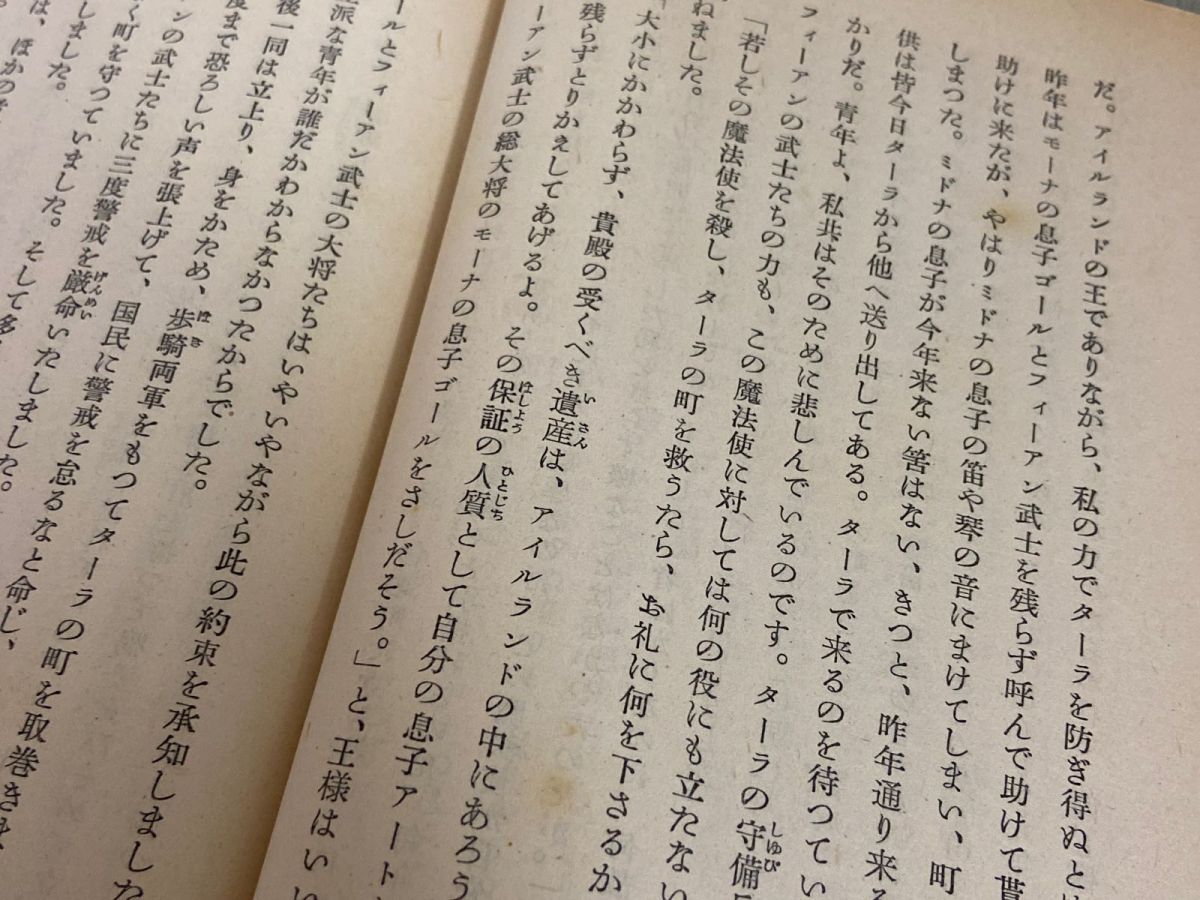 だ。アイルランドの王でありながら、私の力でターラを防ぎ得ぬと
昨年はモーナの息子ゴールとフィーアン武士を残らず呼んで助けて貰
助けに来たが、やはりミドナの息子の笛や琴の音にまけてしまい、町
しまつた。ミドナの息子が今年来ない筈はない、きつと、昨年通り来る
供は皆今日ターラから他へ送り出してある。ターラで来るのを待つてい
かりだ。青年よ、私共はそのために悲しんでいるのです。ターラの守備
フィーアンの武士たちの力も、この魔法使に対しては何の役にも立たない
「若しその魔法使を殺し、ターラの町を救うたら、お礼に何を下さるか
ねました。
「大小にかかわらず、貴殿の受くべき遺産は、アイルランドの中にあろう
残らずとりかえしてあげるよ。その保証の人質として自分の息子アート
ーアン武士の総大将のモーナの息子ゴールをさしだそう。」と、王様はいい
ールとフィーアン武士の大将たちはいやいやながら此の約束を承知しました
派な青年が誰だかわからなかつたからでした。
後一同は立上り、身をかため、歩騎両軍をもつてターラの町を取巻きま
度まで恐ろしい声を張上げて、国民に警戒を怠るなと命じ、
ンの武士たちに三度警戒を厳命いたしました。
く町を守つていました。そして多
しました。
は、ほかの